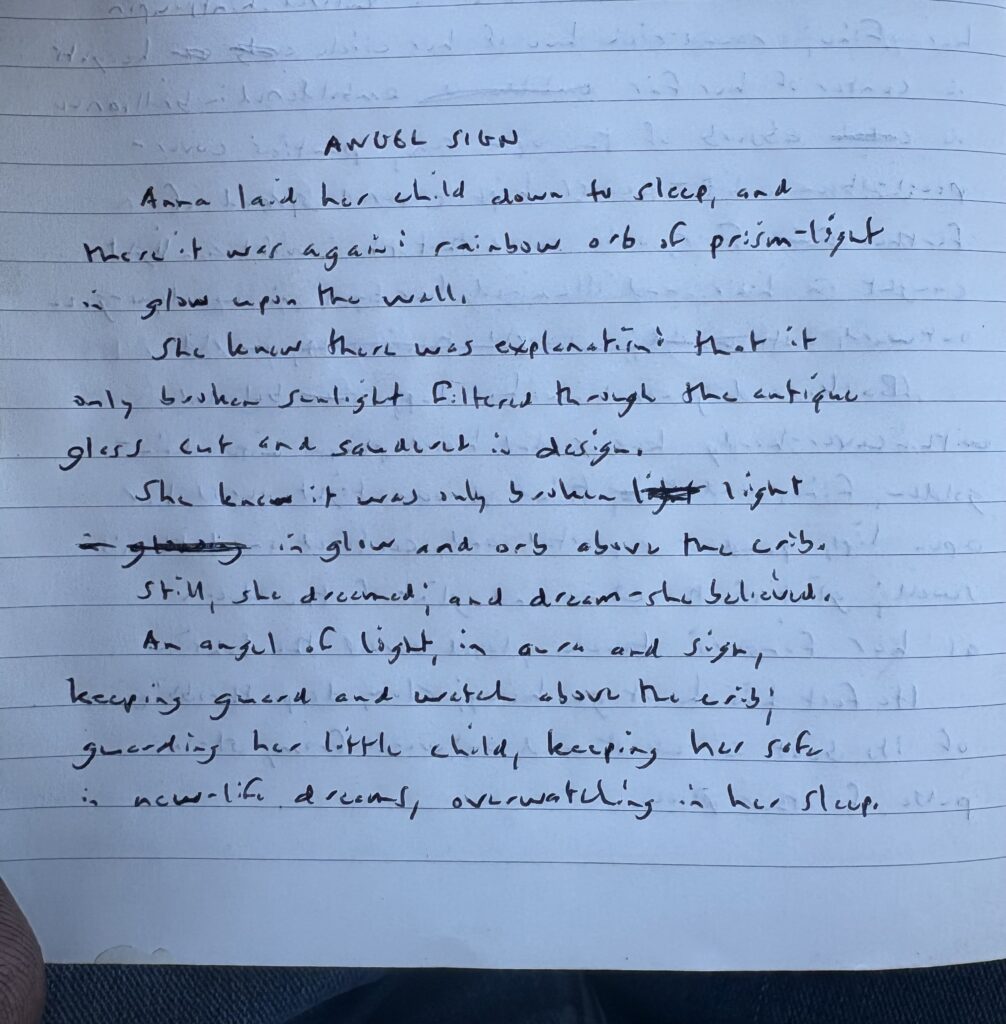 ANGEL SIGN
Anna laid her child down to sleep, and
there it was again: rainbow orb of prism-light
in glow upon the wall.
She knew there was explanation: that it
only broken sunlight filtered through the antique
glass cut and in design.
She knew it was only broken light light
in glowing in glow and orb above the crib.
Still, she dreamed; and dream-she believed.
An angel of light, in aura and sign,
keeping guard and watch above the crib;
guarding her little child, keeping her safe
in new-life dreams, overwatching in her sleep.